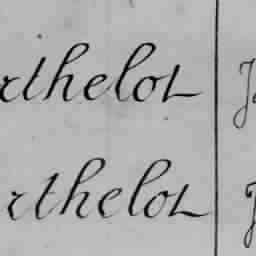 rthelot
rthelot